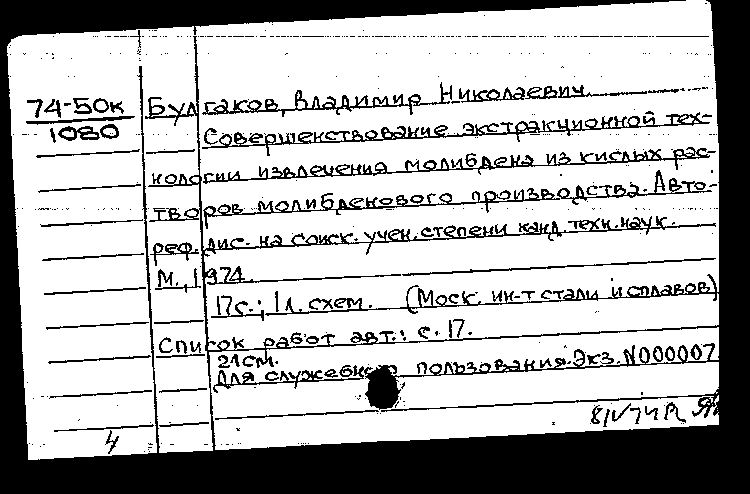 74-50к Булгаков, Владимир Николаевич.
1080 Совершенствование экстракционной тех-
нологии извлечения молибдена из кислых рас-
творов молибденового производства. Авто-
реф. дис. на соиск. учен. степени канд. техн. наук.
М., 1974.
17с.; 1л. схем. (Моск. ин-т стали и сплавов)
Список работ авт.: с. 17.
21см.
Для служебного пользования. Экз. N000007
8/V 74
4